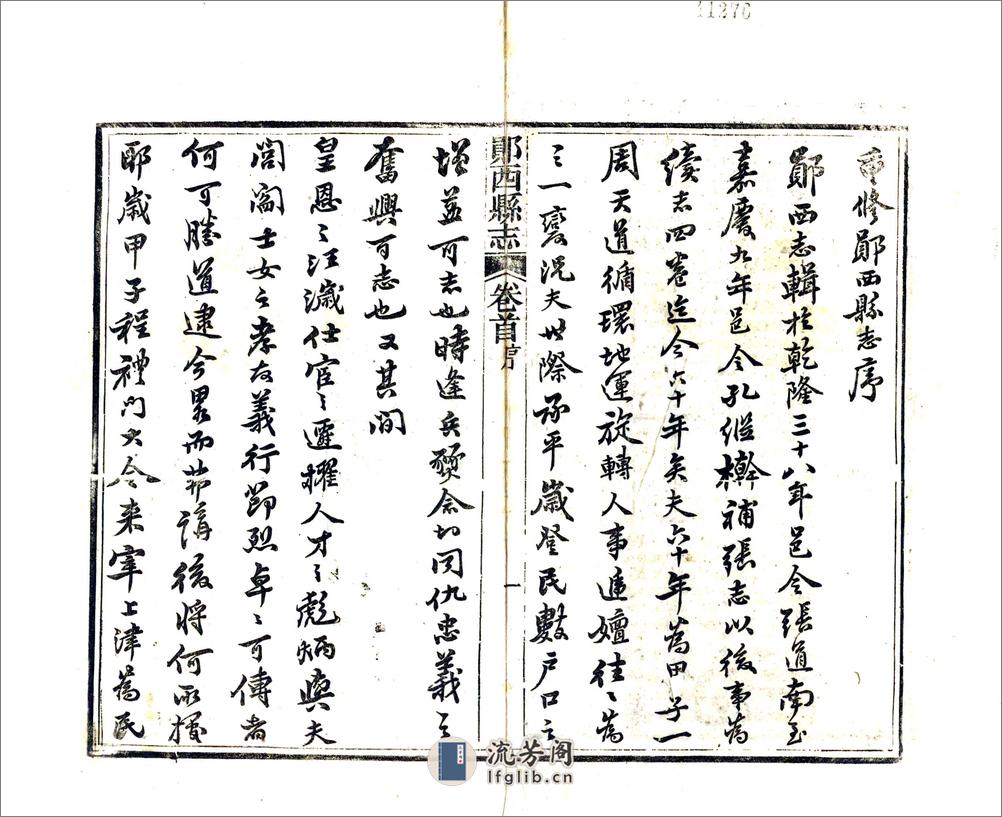 11270
重修鄖西縣志序
鄖西志輯於乾隆三十八年邑令張道南至
嘉慶九年邑令孔繼檊補張志以後事為
續志四卷迄今六十年矣夫六十年為甲子一
周天道循環地運旋轉人事遞嬗往〻為
之一變況夫世際承平歲登民數戶口之
鄖西縣志 卷首 序 一
增益可志也時逢兵燹念切同仇忠義之
奮興可志也又其間
皇恩〻汪濊仕宦〻遷擢人才〻彪炳與夫
閭閻士女之孝友義行節烈卓〻可傳者
何可勝道逮今畧而弗講後將何所據
耶歲甲子程禮門大令來宰上津為民
流芳阁
lfglib.cn